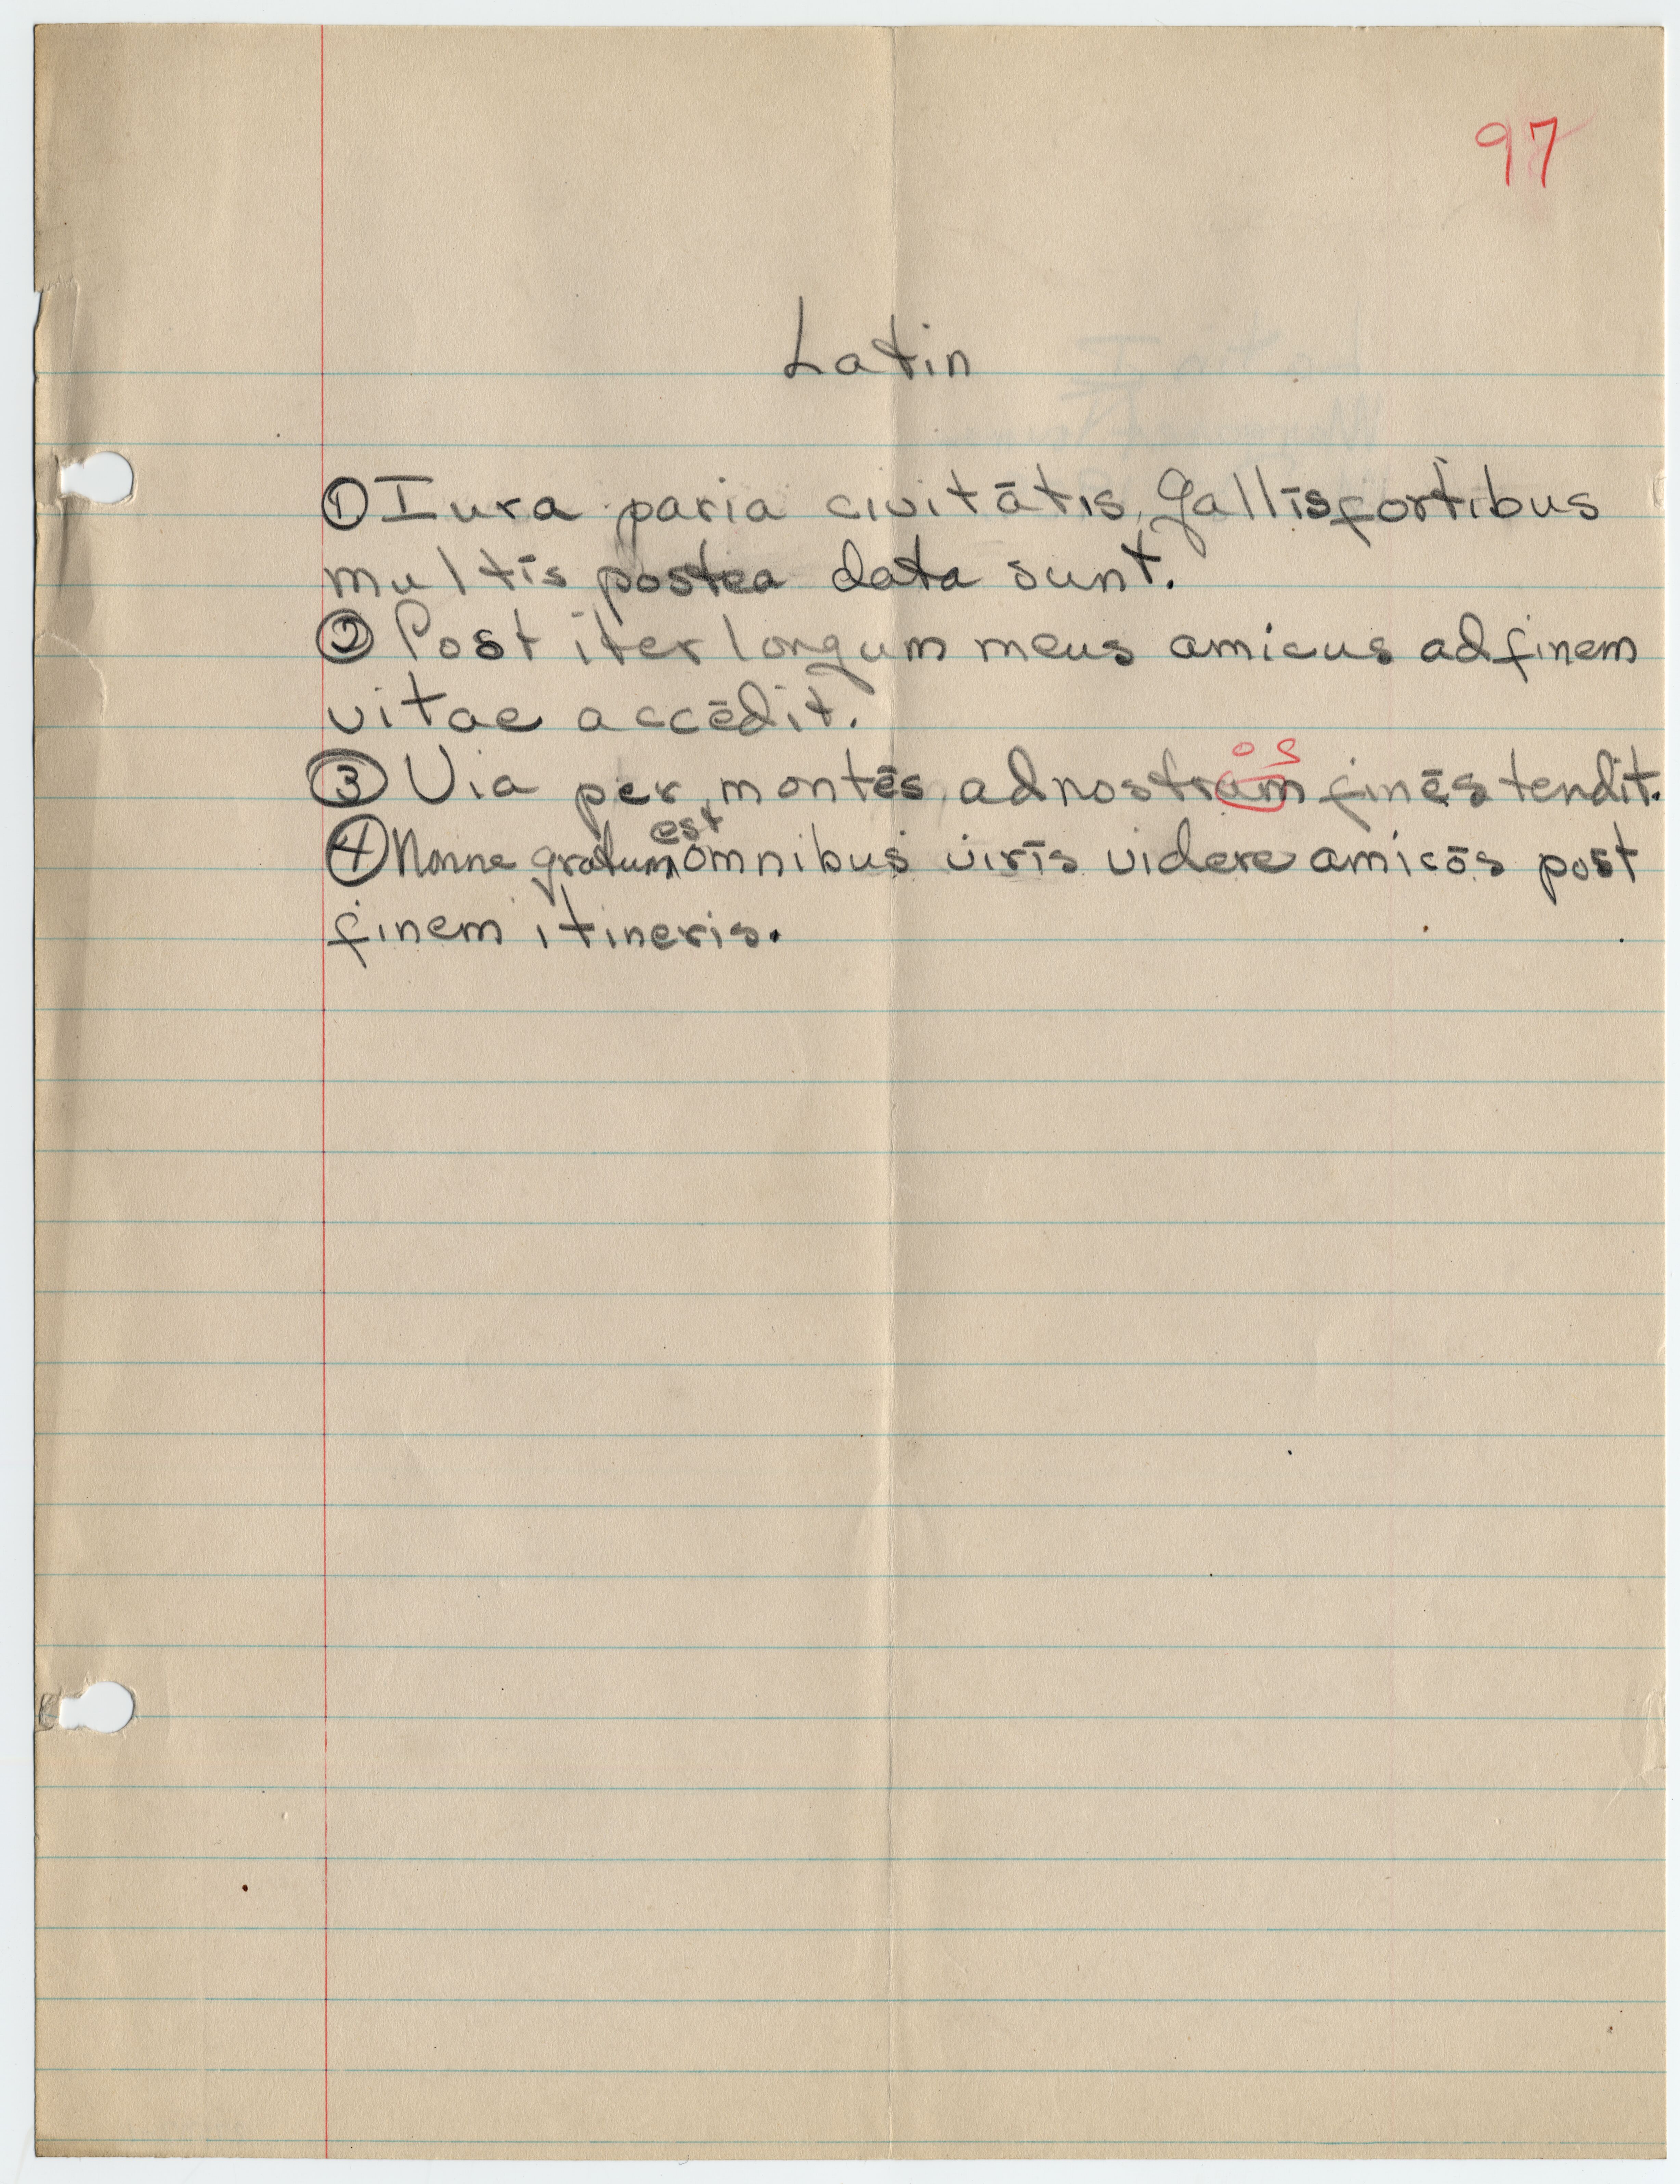 97
Latin
① Iura paria civitātis Gallīs fortibus
multīs postea data sunt.
② Post iter longum meus amicus ad finem
vitae accēdit.
os
③ Via per montēs ad nostram finēs tendit.
est
④ Nonne gratum omnibus virīs videre amicōs post
finem itineris.